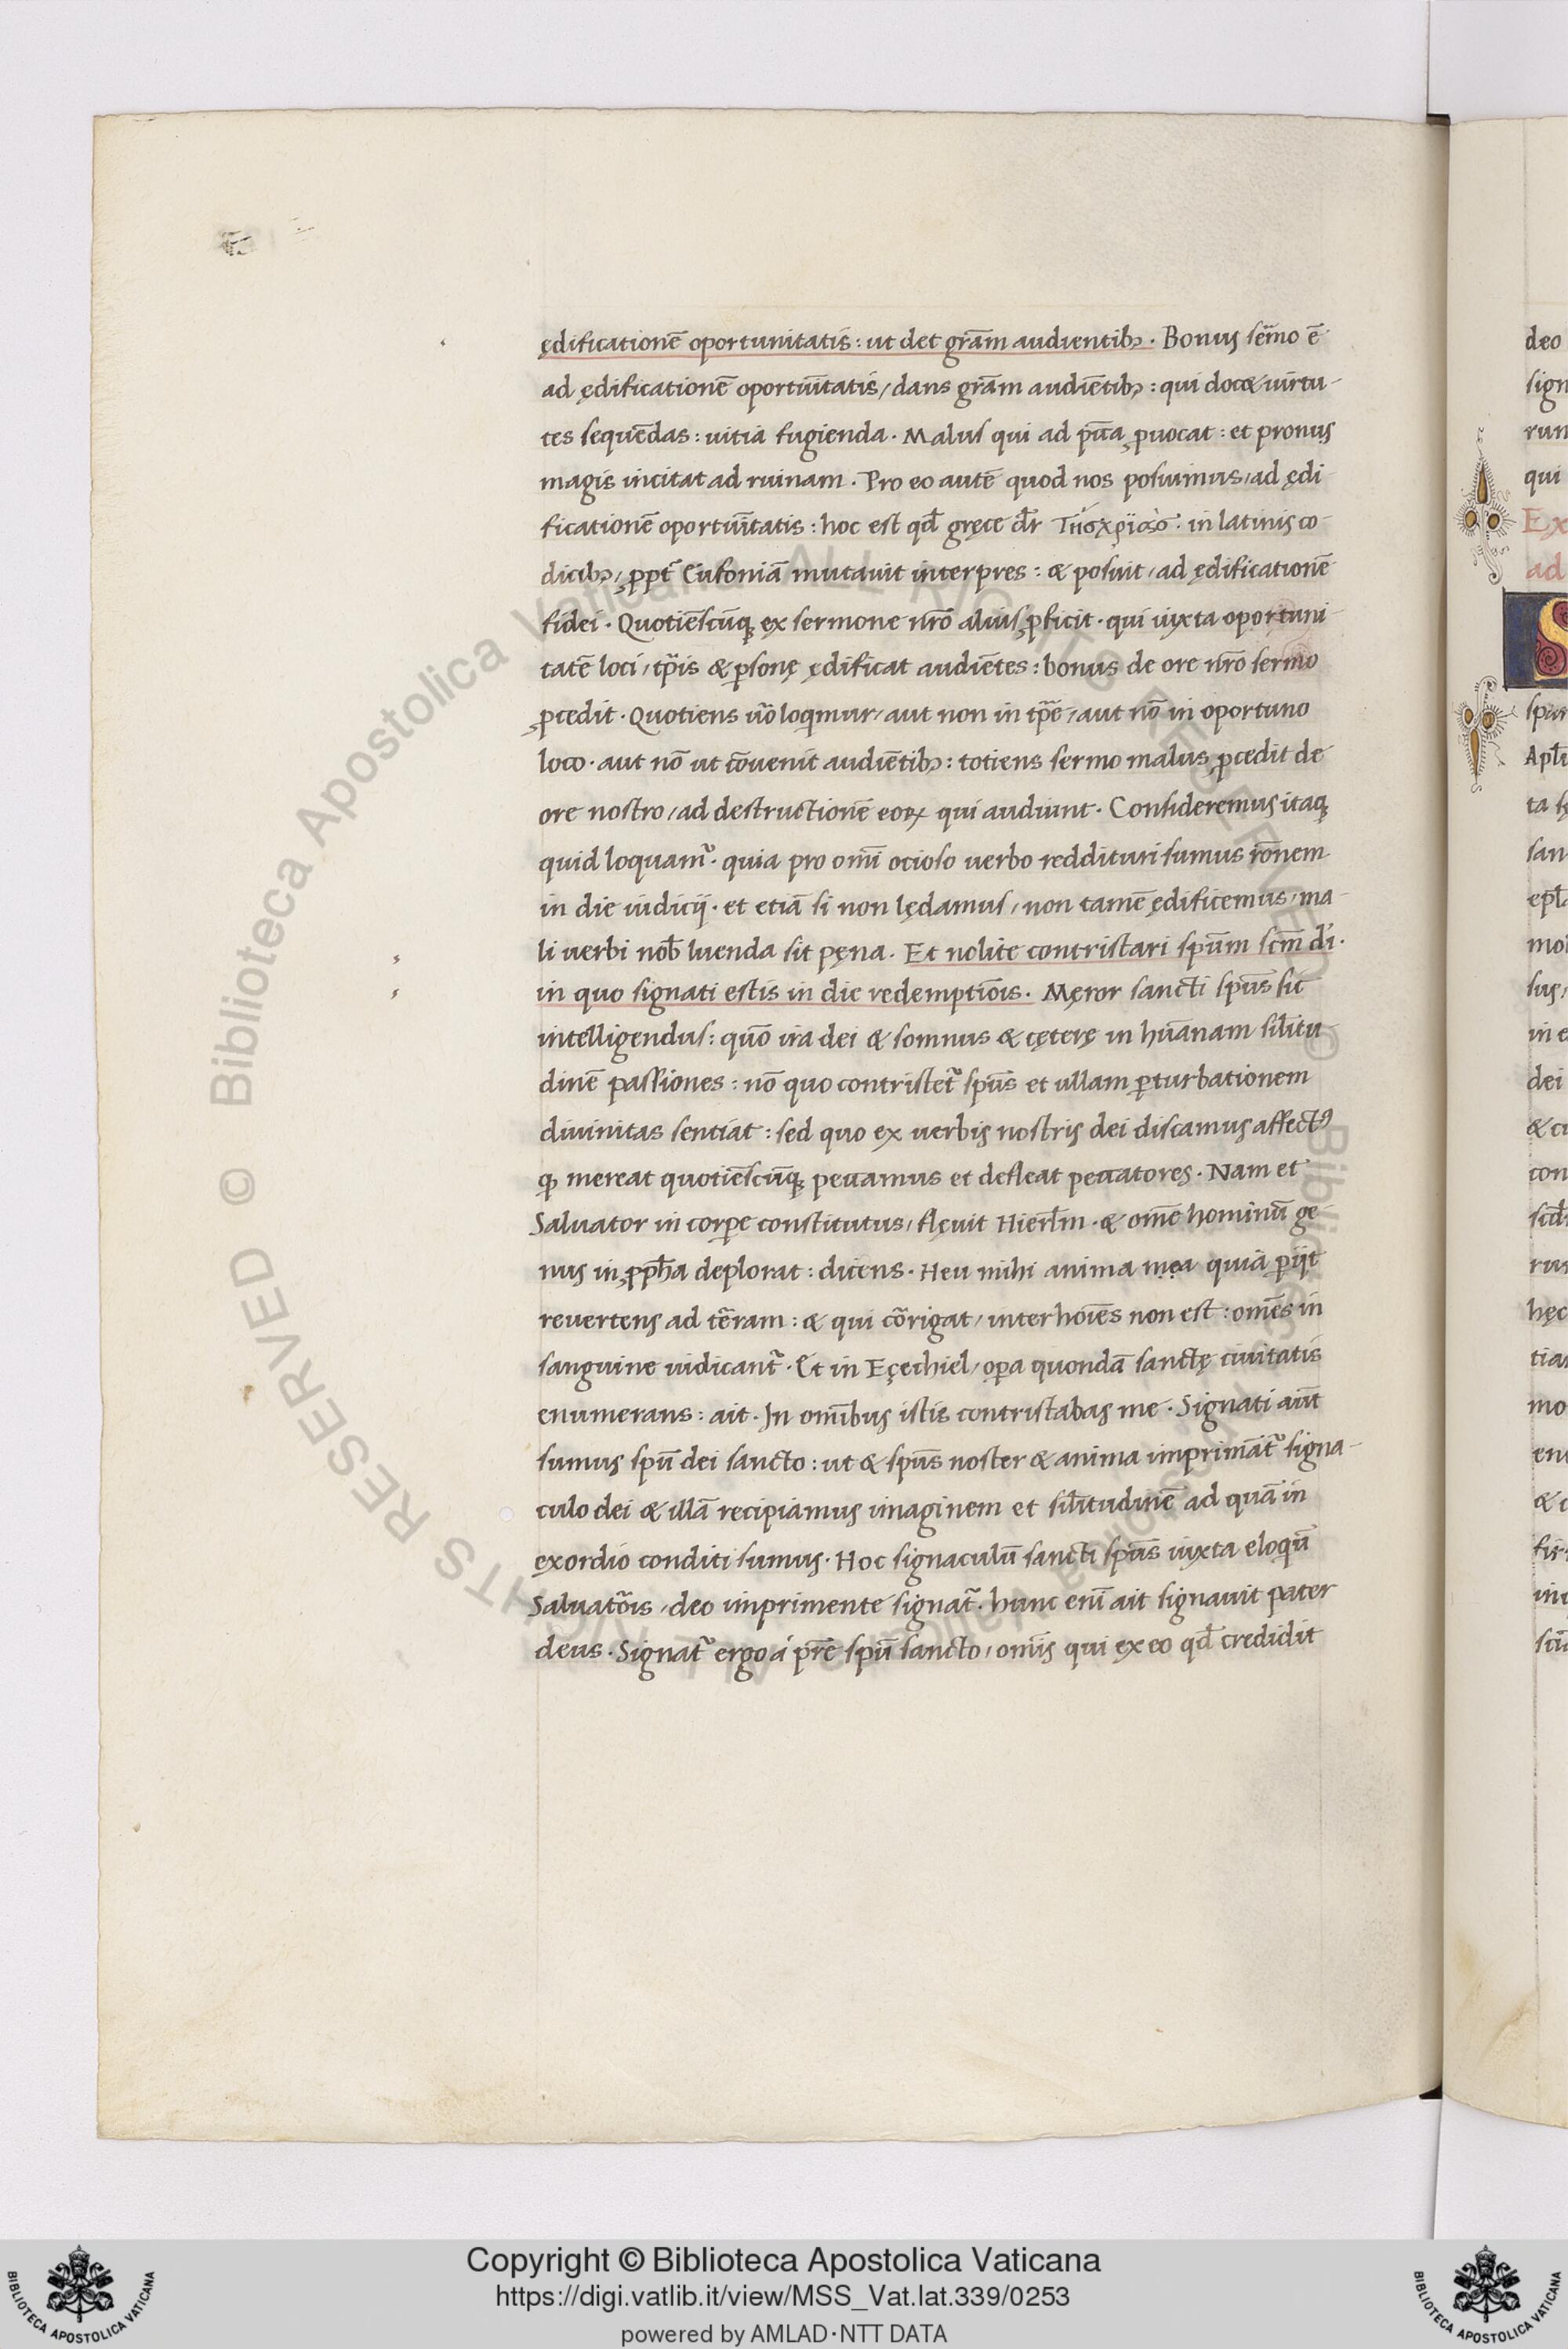 ędificationē oportunitatis: ut det grãm audientibꝫ. Bonus ſermo ē
ad ędificationē oportuītatis/ dans grãm audiētibꝫ: qui docꝫ uirtu-
tes ſequēdas: uitia fugienda. Maluſ qui ad pc̄a ꝓuocat: et pronus
magis incitat ad ruinam. Pro eo autē quod nos poſuimus/ ad ędi
ficationē oportuītatis: hoc eſt qd̄ gręce dr̄ τῆσ χρείασ. in latinis co-
dicibꝫ/ ꝓpt̄ Eufoniā mutauit interpres: & poſuit/ ad ędificationē
fidei. Quotieſcūqꝫ ex ſermone nr̄o aliuiſ ꝓficit. qui iuxta oportuni-
tatē loci/ tp̄is & ꝑſonę ędificat audiētes: bonus de ore nr̄o ſermo
ꝓcedit. Quotiens uō loqmur/ aut non in tp̄e/ aut nō in oportuno
loco. aut nō ut cōuenit audiētibꝫ: totiens ſermo malus ꝓcedit de
ore nostro/ ad destructionē eoꝝ qui audiunt. Conſideremus itaqꝫ
quid loquamr̄. quia pro omī ocioſo uerbo reddituri ſumus rōnem
in die iudicij. et etiā ſi non lędamuſ/ non tamē ędificemus/ ma-
li uerbi nob̄ luenda ſit pęna. Et nolite contriſtari ſpūm ſcm̄ dī.
in quo ſignati eſtis in die redemptiōis. Męror ſancti ſpūs ſic
intelligenduſ: quō ira dei & ſomnus & cęterę in hūanam ſilitu-
dinē paſſiones: nō quo contriſtetr̄ ſpūs et ullam ꝑturbationem
diuinitas ſentiat: ſed quo ex uerbis nostris dei diſcamus affectꝰ
ꝙ mereat quotieſcūqꝫ peccamus et defleat peccatores. Nam et
Saluator in corꝑe conſtitutus/ flęuit Hierl̄m. & om̄e hominū ge-
nus in ꝓph̄a deplorat: dicens. Heu mihi anima mea quia ꝑijt
reuertens ad tēram: & qui cōrigat/ inter hoīes non eſt: omēs in
ſanguine iudicantr̄. Et in Eçechiel/ oꝑa quondā ſanctę ciuitatis
enumerans: ait. In omībus iſtis contriſtabas me. Signati aūt
ſumus ſpū dei ſancto: ut & ſpūs noſter & anima imprimātr̄ ſigna-
culo dei & illā recipiamus imaginem et ſil̄itudinē ad quā in
exordio conditi ſumus. Hoc ſignaculū ſancti ſpūs iuxta eloqū
Saluatōis/ deo imprimente ſignatr̄. hunc enī ait ſignauit pater
deus. Signatr̄ ergo á pr̄e ſpū ſancto/ omīs qui ex eo qd̄ credidit
deo
ſign
run
qui
Ex
ad
S
ſpir
ta
ſan
mo
ſus,
in e
dei
con
rur
hęc
tia
mo
© Biblioteca Apostolica Vaticana ALL RIGHTS RESERVED © Biblioteca Apostolica Vaticana ALL RIGHTS RESERVED
Copyright © Biblioteca Apostolica Vaticana
https://digi.vatlib.it/view/MSS_Vat.lat.339/0253
powered by AMLAD·NTT DATA
BIBLIOTECA APOSTOLICA VATICANA
BIBLIOTECA APOSTOLICA VATICANA